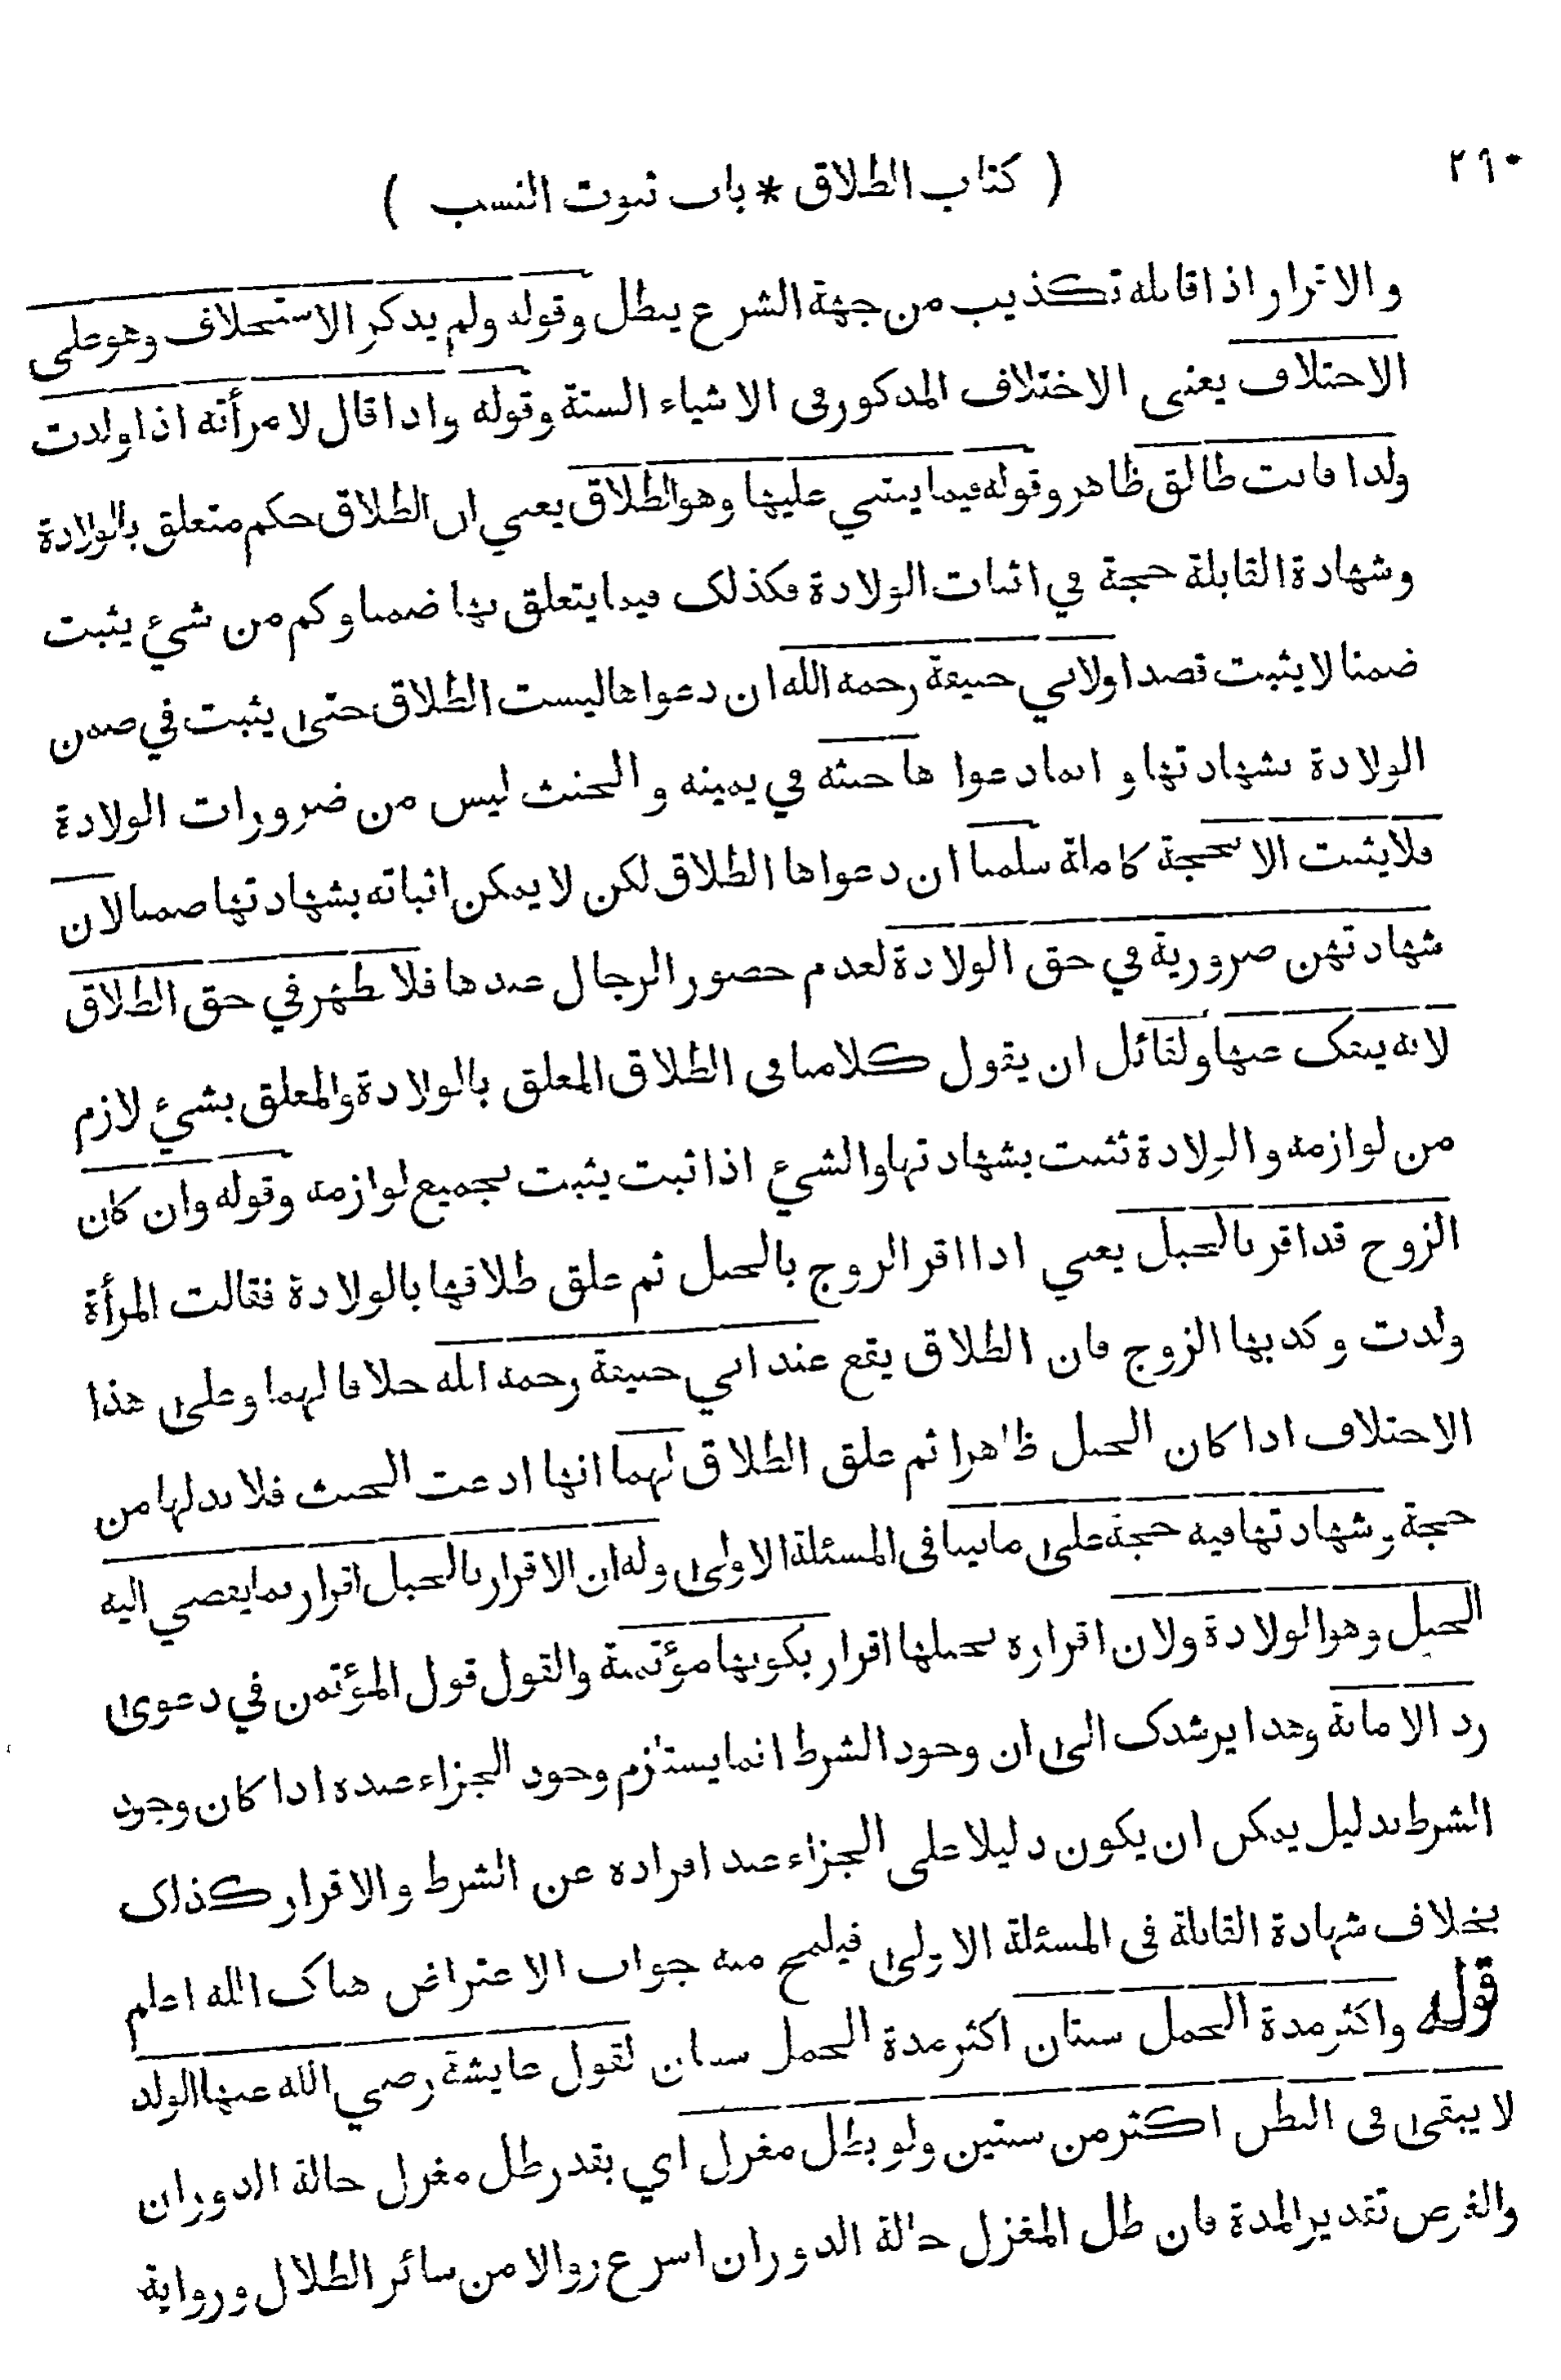 ٢٩٠
( كتاب الطلاق * باب ثبوت النسب )
والاقرار اذا قابله تكذيب من جهة الشرع يبطل وقوله ولم يذكر الاستحلاف وهو على
الاختلاف يعنى الاختلاف المذكور فى الاشياء الستة وقوله واذا قال لامرأته اذا ولدت
ولدا فانت طالق ظاهر وقوله فيما يبتنى عليها وهو الطلاق يعنى ان الطلاق حكم متعلق بالولادة
وشهادة القابلة حجة في اثبات الولادة فكذلك فيما يتعلق بها ضمنا وكم من شيء يثبت
ضمنا لا يثبت قصدا ولابي حنيفة رحمه الله ان دعواها ليست الطلاق حتى يثبت في ضمن
الولادة بشهادتها وانما دعواها حنثه في يمينه والحنث ليس من ضرورات الولادة
فلا يثبت الا بحجة كاملة سلمنا ان دعواها الطلاق لكن لا يمكن اثباته بشهادتها ضمنا لان
شهادتهن ضرورية في حق الولادة لعدم حضور الرجال عندها فلا تظهر في حق الطلاق
لانه ينفك عنها ولقائل ان يقول كلامنا فى الطلاق المعلق بالولادة والمعلق بشيء لازم
من لوازمه والولادة تثبت بشهادتها والشيء اذا ثبت يثبت بجميع لوازمه وقوله وان كان
الزوج قد اقر بالحبل يعني اذا اقر الزوج بالحبل ثم علق طلاقها بالولادة فقالت المرأة
ولدت وكذبها الزوج فان الطلاق يقع عند ابي حنيفة رحمه الله خلافا لهما وعلى هذا
الاختلاف اذا كان الحبل ظاهرا ثم علق الطلاق لهما انها ادعت الحنث فلا بد لها من
حجة وشهادتها فيه حجة على ما بينا فى المسئلة الاولى وله ان الاقرار بالحبل اقرار بما يفضي اليه
الحبل وهو الولادة ولان اقراره بحبلها اقرار بكونها مؤتمنة والقول قول المؤتمن في دعوى
رد الامانة وهذا يرشدك الى ان وجود الشرط انما يستلزم وجود الجزاء عنده اذا كان وجود
الشرط بدليل يمكن ان يكون دليلا على الجزاء عند افراده عن الشرط والاقرار كذلك
بخلاف شهادة القابلة فى المسئلة الاولى فيلمح منه جواب الاعتراض هناك الله اعلم
قوله واكثر مدة الحمل سنتان اكثر مدة الحمل سنتان لقول عايشة رضي الله عنها الولد
لا يبقى فى البطن اكثر من سنتين ولو بظل مغزل اي بقدر ظل مغزل حالة الدوران
والغرض تقدير المدة فان ظل المغزل حالة الدوران اسرع زوالا من سائر الظلال ورواية